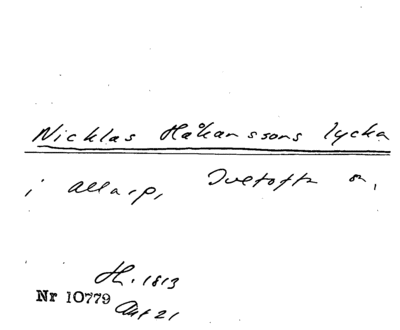 Nicklas Håkanssons lycka
i Allarp, Tvetofta sn,
H. 1813
Nr 10779
Akt 21